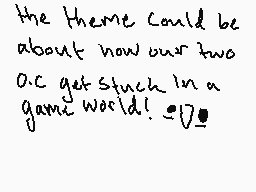 the theme could be
about how our two
O.C get stuck in a
game world!